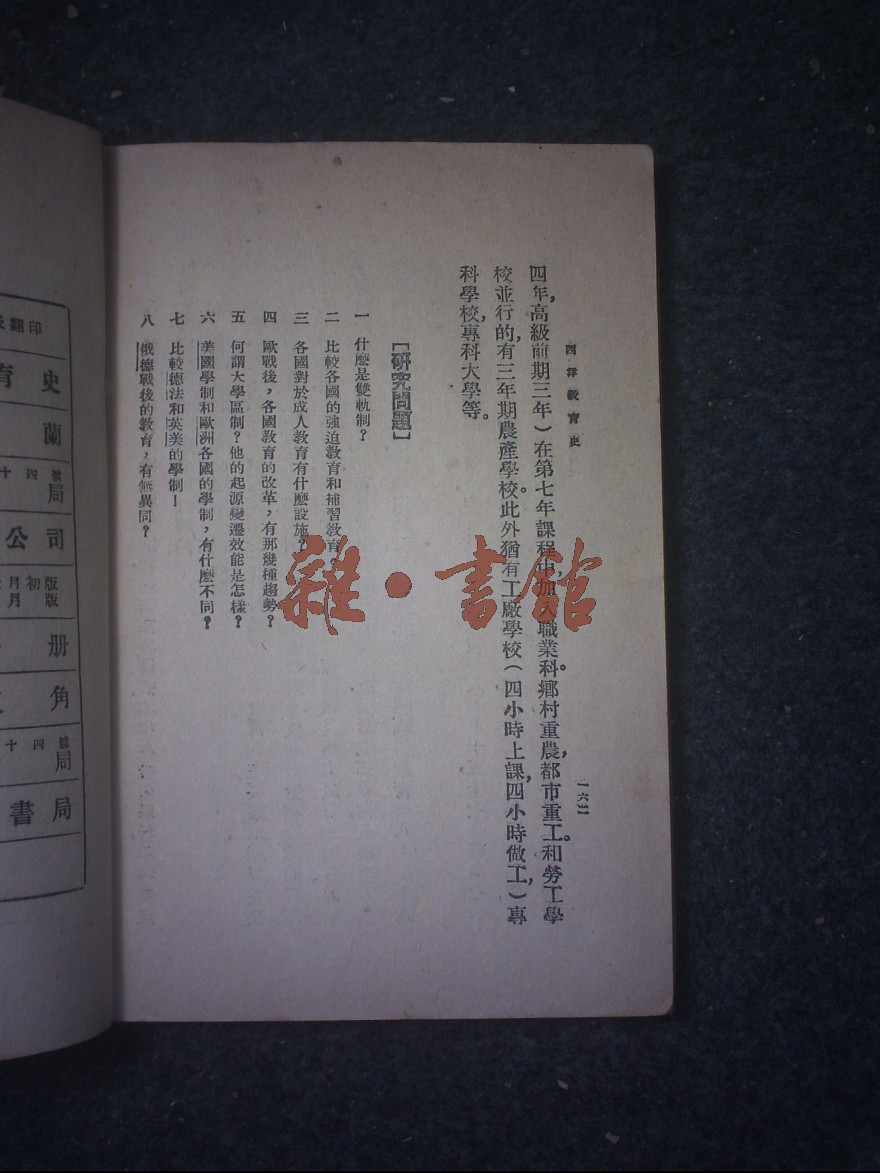 西洋教育史
一六二
四年，高級前期三年）在第七年課程中，加入職業科。鄉村重農，都市重工。和勞工學
校並行的，有三年期農產學校。此外猶有工廠學校（四小時上課，四小時做工，）專
科學校，專科大學等。
［研究問題］
一 什麼是雙軌制？
二 比較各國的強迫教育和補習教育
三 各國對於成人教育有什麼設施？
四 歐戰後，各國教育的改革，有那幾種趨勢？
五 何謂大學區制？他的起源變遷效能是怎樣？
六 美國學制和歐洲各國的學制，有什麼不同？
七 比較德法和英美的學制！
八 俄德戰後的教育，有無異同？
雜·書館
翻印
育史
蘭
十四號
局
公司
月初版
月 版
册
角
十四號
局
書局